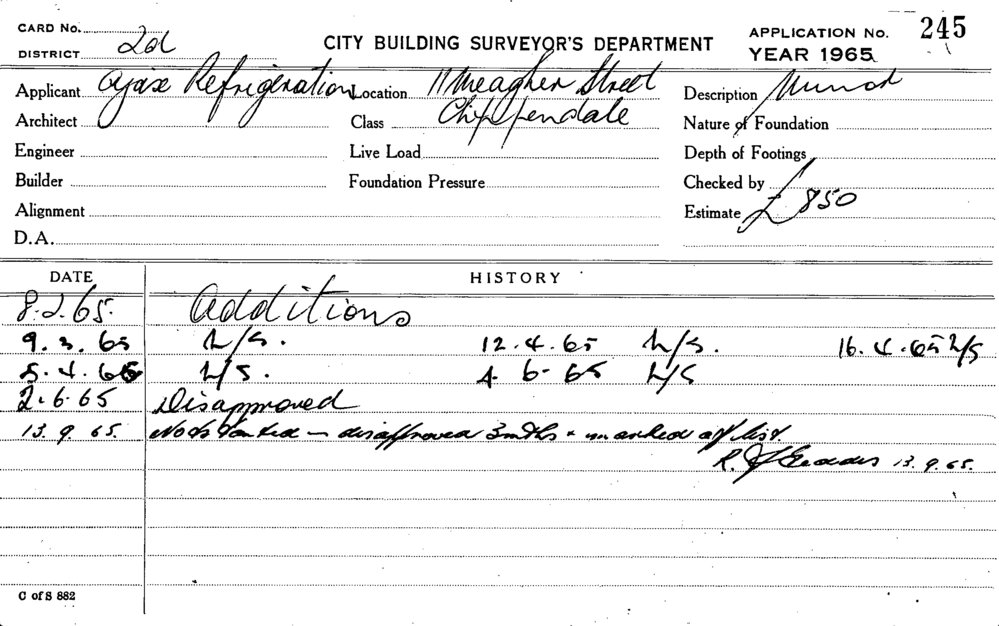 CARD No. APPLICATION No. 245
DISTRICT 2d CITY BUILDING SURVEYOR'S DEPARTMENT YEAR 1965
Applicant Ajax Refrigeration Location 11 Meagher Street Description Minor
Architect Class Chippendale Nature of Foundation
Engineer Live Load Depth of Footings
Builder Foundation Pressure Checked by
Alignment Estimate £850
D.A.
DATE HISTORY
8.2.65. Additions
9.3.65 L/S. 12.4.65 L/S. 16.4.65 L/S
5.4.65 L/S. 4-6-65 L/S
2.6.65 Disapproved
13.9.65. disapproved 3mths & marked off list.
R. 13.9.65.
C of S 882